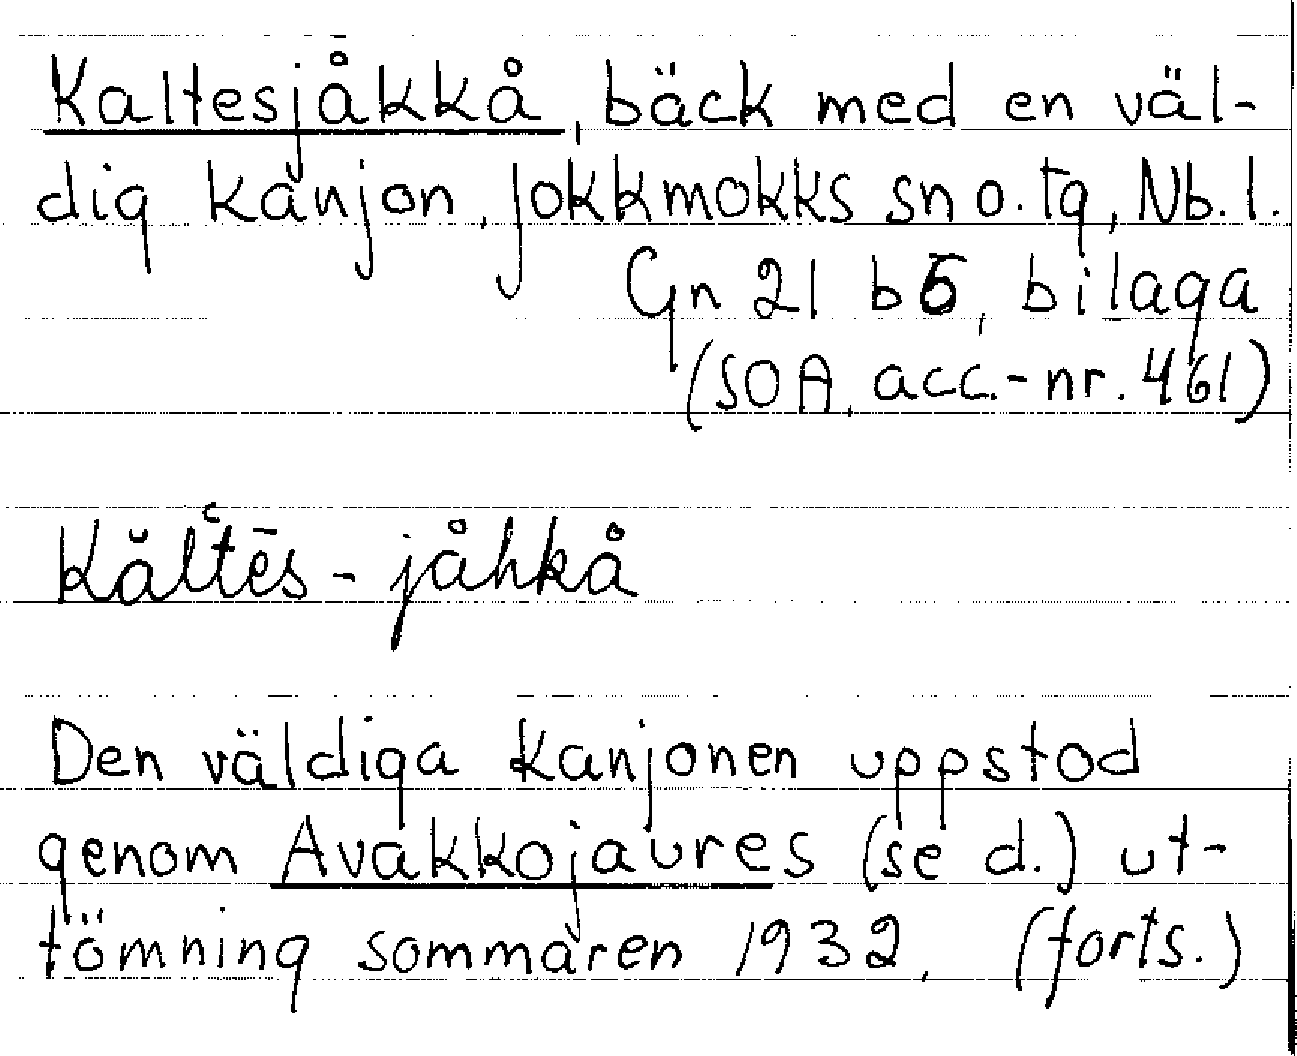 Kaltesjåkkå, bäck med en väl-
dig kanjon, Jokkmokks sn o. tg, Nb. l.
Gn 21 b5, bilaga
(SOA, acc.-nr. 461)
Kåltēs - jåhkå
Den väldiga kanjonen uppstod
genom Avakkojaures (se d.) ut-
tömning sommaren 1932. (forts.)